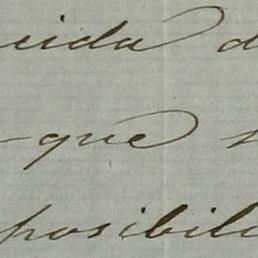 cida d
que s
posibili